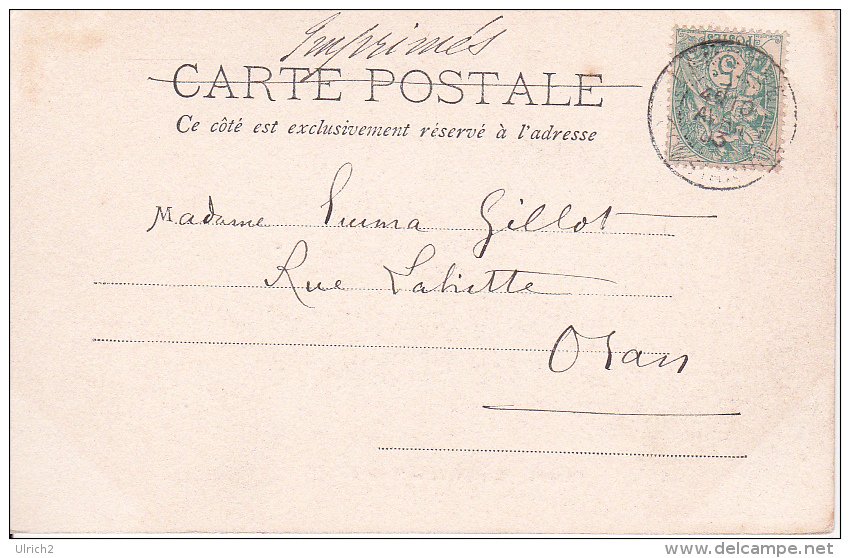 Imprimés
CARTE POSTALE
Ce côté est exclusivement réservé à l'adresse
POSTES
5
AVRIL
03
Madame Gillot
Rue
Oran
Ulrich2
www.delcampe.net